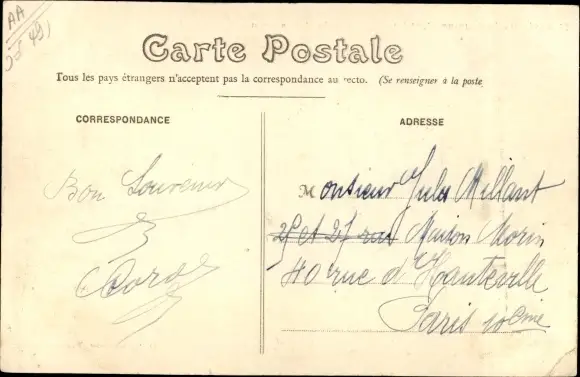 AA
Carte Postale
Tous les pays étrangers n'acceptent pas la correspondance au recto. (Se renseigner à la poste
CORRESPONDANCE
ADRESSE
Bon Souvenir
Monsieur Jules Millant
25 et 27 rue Maison Morin
40 rue d'Hauteville
Paris 10eme